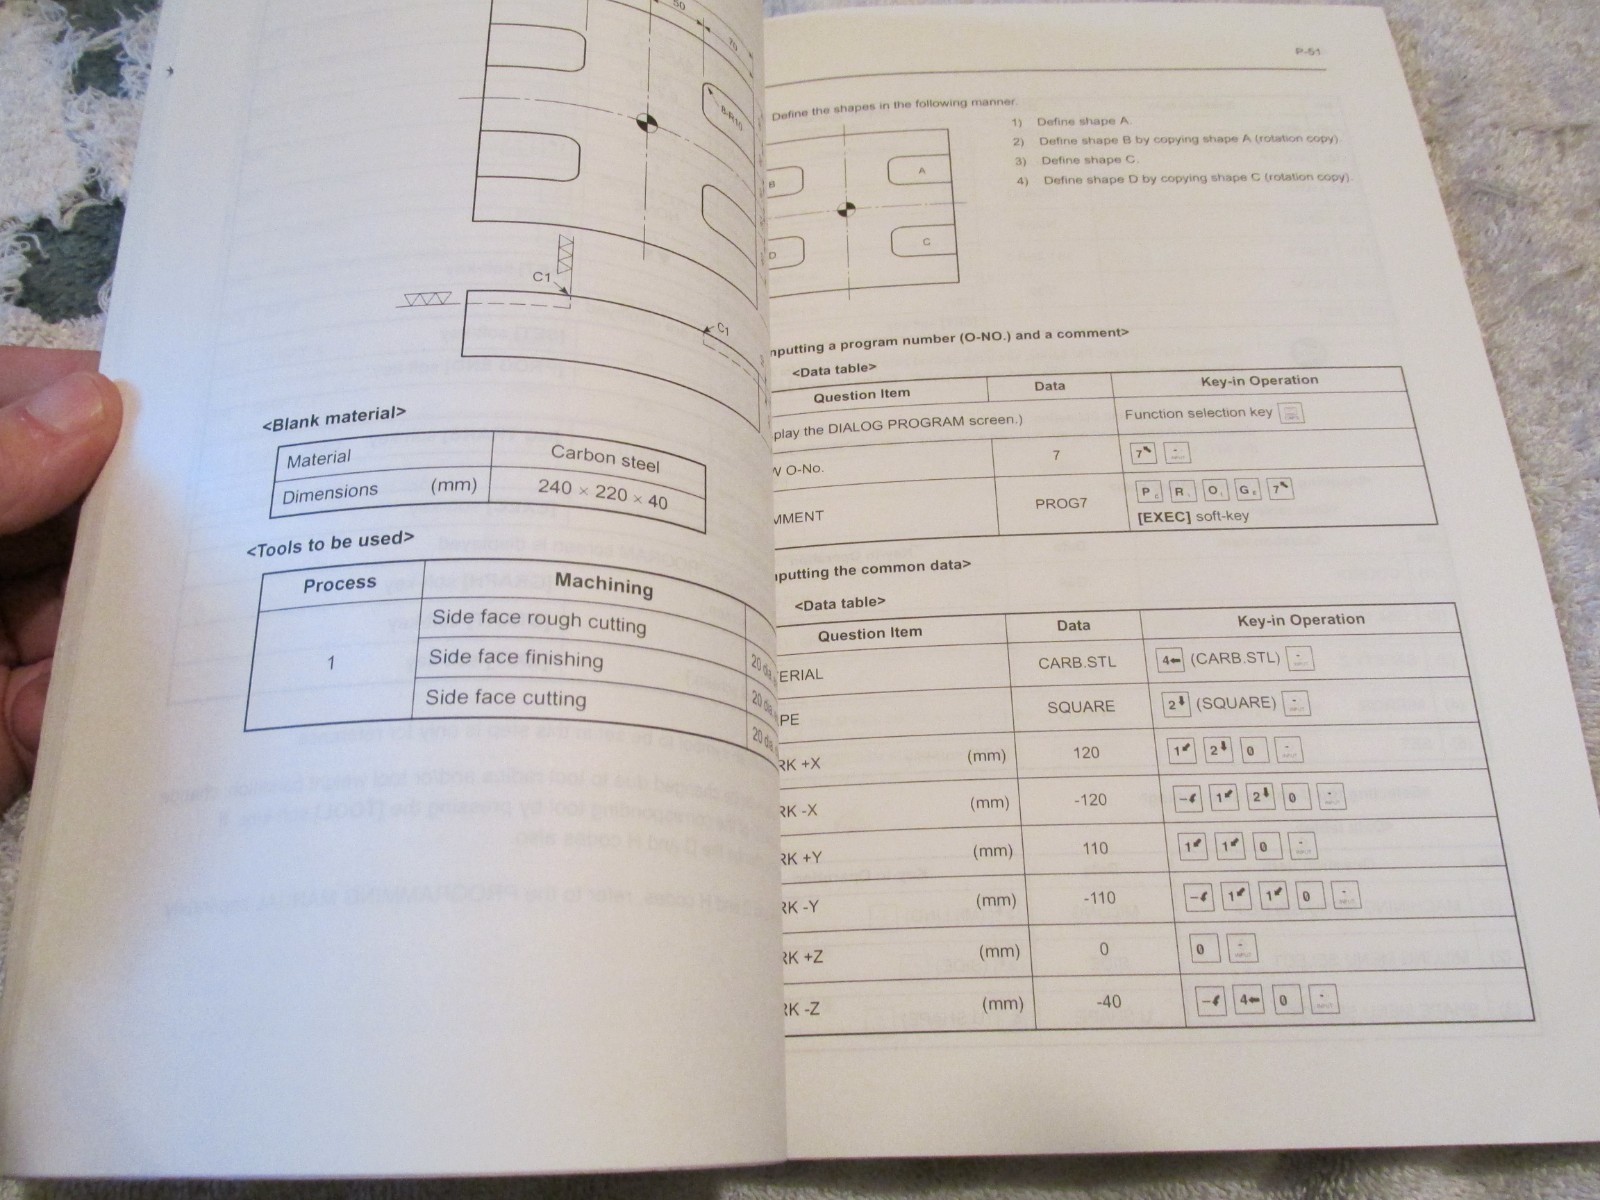 50
70
8-R10
C1
C1
<Blank material>
Material Carbon steel
Dimensions (mm) 240 × 220 × 40
<Tools to be used>
Process Machining
1 Side face rough cutting 20 dia.
Side face finishing 20 dia.
Side face cutting 20 dia.
P-51
Define the shapes in the following manner.
1) Define shape A.
2) Define shape B by copying shape A (rotation copy).
3) Define shape C.
4) Define shape D by copying shape C (rotation copy).
B A
D C
nputting a program number (O-NO.) and a comment>
<Data table>
Question Item Data Key-in Operation
play the DIALOG PROGRAM screen.) Function selection key
W O-No. 7 7 INPUT
MMENT PROG7 P R O G 7
[EXEC] soft-key
nputting the common data>
<Data table>
Question Item Data Key-in Operation
ERIAL CARB.STL 4 (CARB.STL) INPUT
PE SQUARE 2 (SQUARE) INPUT
RK +X (mm) 120 1 2 0 INPUT
RK -X (mm) -120 - 1 2 0 INPUT
RK +Y (mm) 110 1 1 0 INPUT
RK -Y (mm) -110 - 1 1 0 INPUT
RK +Z (mm) 0 0 INPUT
RK -Z (mm) -40 - 4 0 INPUT